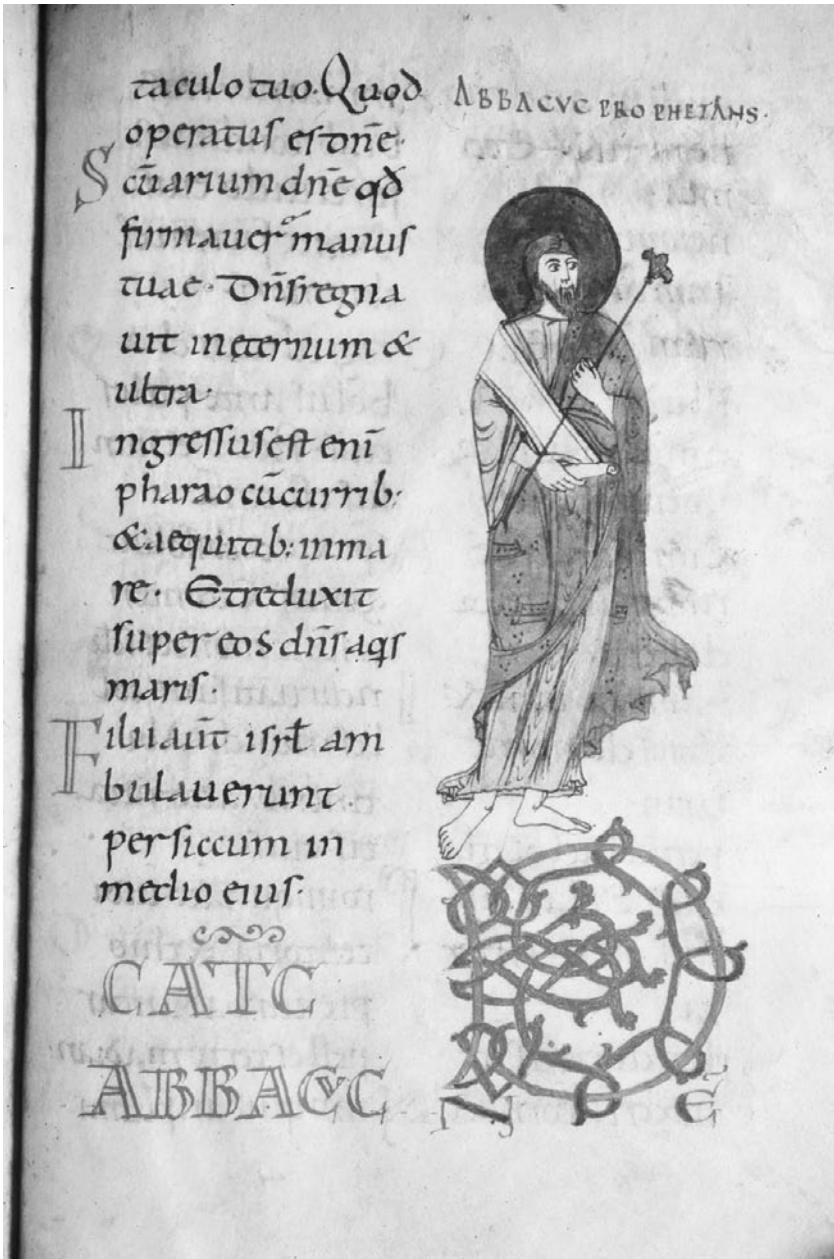 taculo tuo· Quod
operatus es dn̄e·
Scūarium dn̄e qđ
firmauer̄ manus
tuae· Dn̄s regna
uit in eternum &
ultra·
Ingressus est enī
pharao cū currib:
& aequitib: in ma
re· Et reduxit
super eos dn̄s aq̄s
maris·
Filii aūt isrł am
bulauerunt
per siccum in
medio eius·
CATC
ABBACVC
ABBACVC PROPHETANS·
D
N E